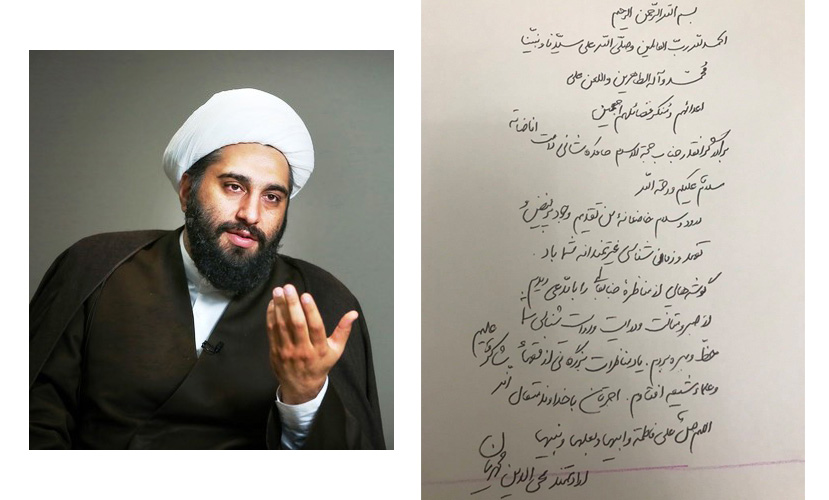 بسم الله الرحمن الرحیم
الحمد لله رب العالمین وصلی الله علی سیدنا ونبینا
محمد وآله الطاهرین واللعن علی
اعدائهم ومنکر فضائلهم اجمعین
برادر گرانقدر جناب حجة الاسلام حامد کاشانی دامت افاضاته
سلام علیکم ورحمة الله
درود و سلام خاضعانه‌ام تقدیم وجود پر فیض و
تعهد و زمان شناسی غیرتمندانه شما باد.
گوشه‌هایی از مناظرهٔ جنابعالی را با مدعی دیدم
از صبر و متانت و درایت و شناسی شما
محظوظ و بهره بردم. یاد مناظرات بزرگانی از فقهاء
و علماء شیعه افتادم. اجرتان با خداوند متعال
اللهم صل علی فاطمة وابیها وبعلها وبنیها
ارادتمند محی الدین